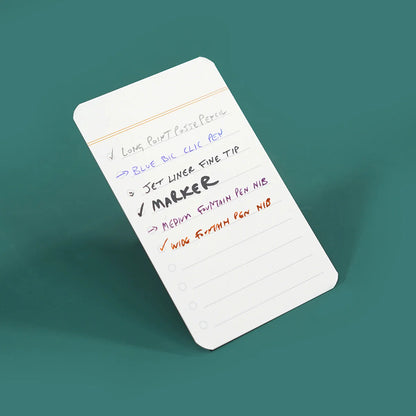 ✓ LONG POINT PENCIL
→ BLUE BIC CLIC PEN
JET LINER FINE TIP
✓ MARKER
→ MEDIUM FOUNTAIN PEN NIB
✓ WIDE FOUNTAIN PEN NIB